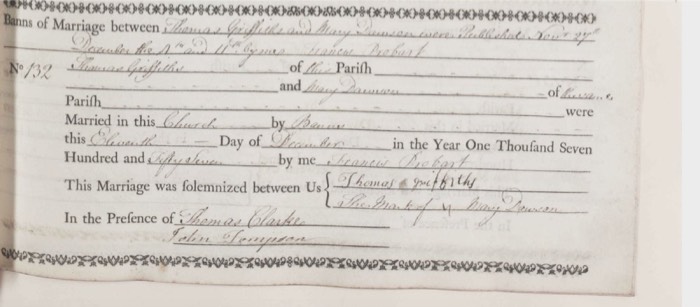 Banns of Marriage between Thomas Griffiths and Mary Dawson were Published Novr 27th
December the 4th and 11th by me Francis Probart
No 132 Thomas Griffiths of this Pariſh
and Mary Dawson of
Pariſh were
Married in this Church by Banns
this Eleventh Day of December in the Year One Thouſand Seven
Hundred and Fifty Seven by me Francis Probart
This Marriage was ſolemnized between Us Thomas griffiths
The Mark of Mary Dawson
In the Preſence of Thomas Clarke
John Tompson